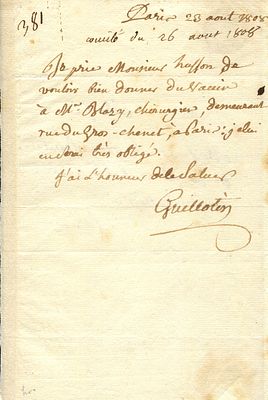 381
Paris 23 aout 1808
comité du 26 aout 1808
Je prie Monsieur husson de
vouloir bien donner du vaccin
à Mr. Blazy, chirurgien, demeurant
rue du Gros-chenet, a Paris; je lui
en serai très obligé.
J'ai L'honneur de le Saluer
Guillotin